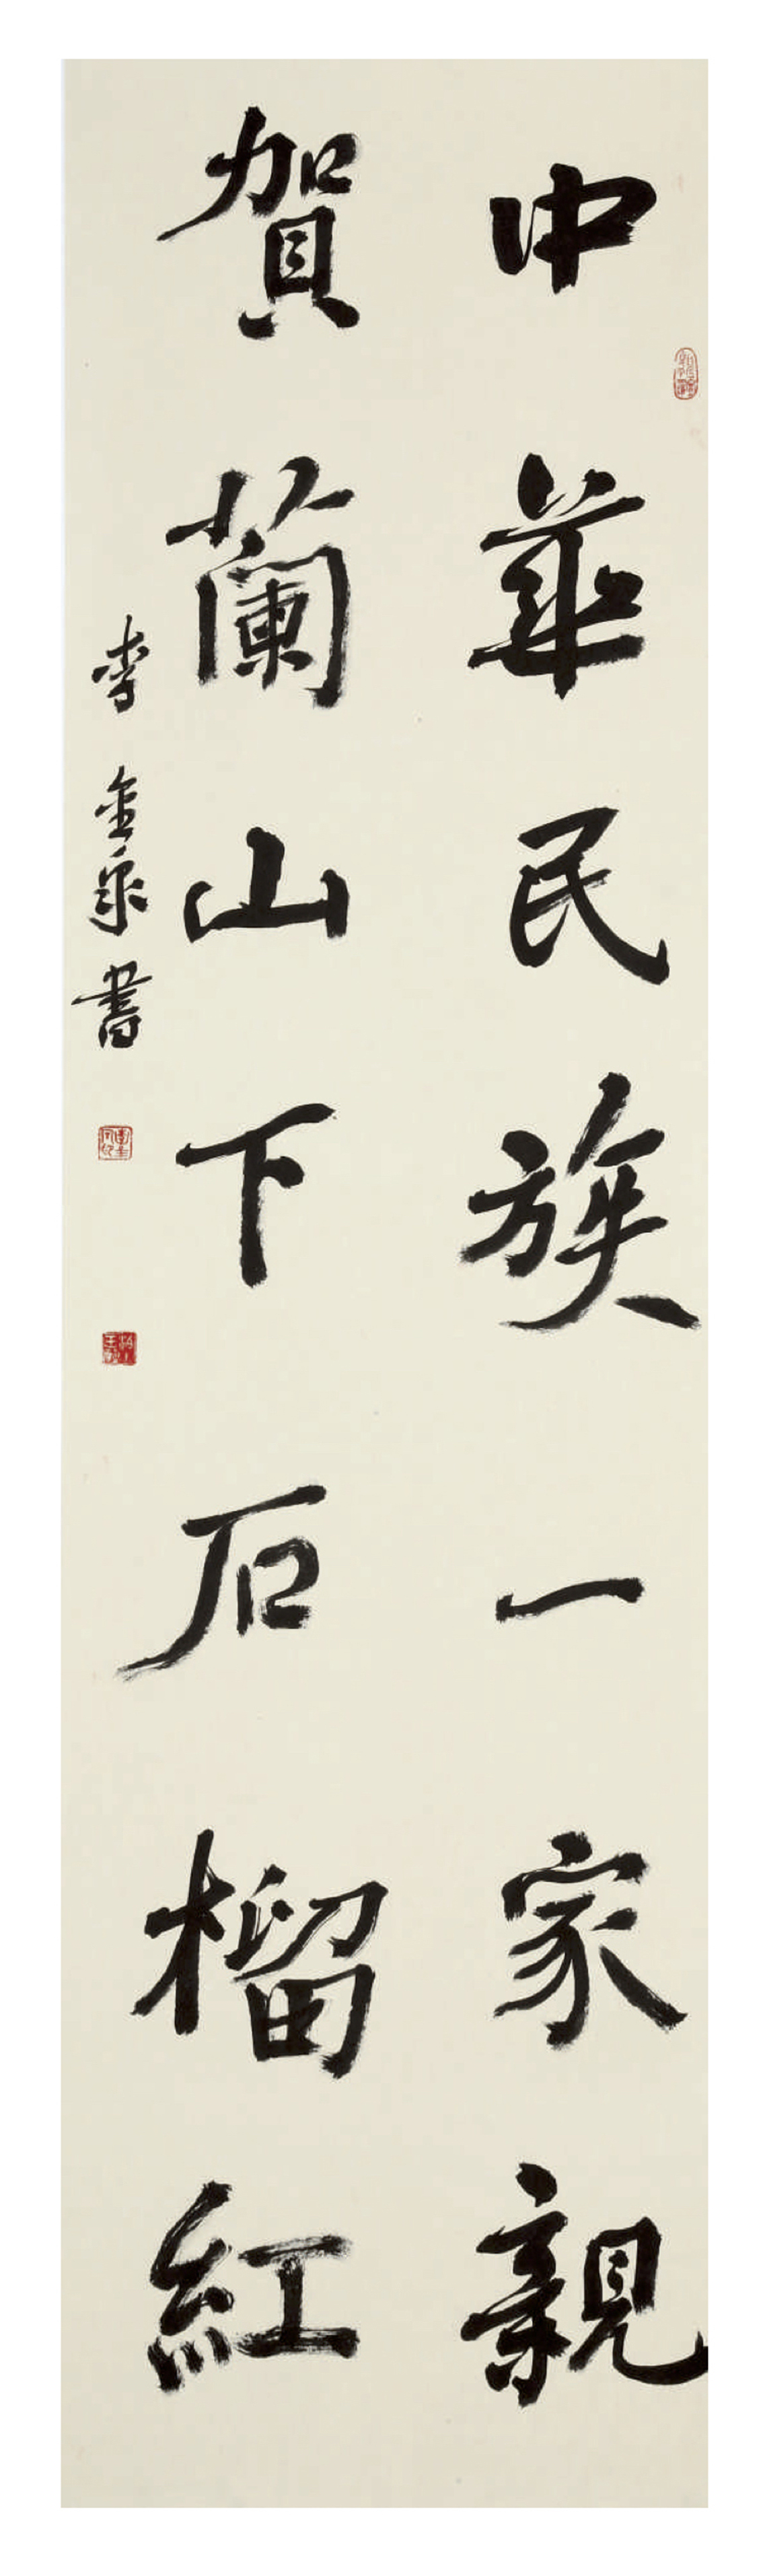 中華民族一家親
賀蘭山下石榴紅
李金泉書